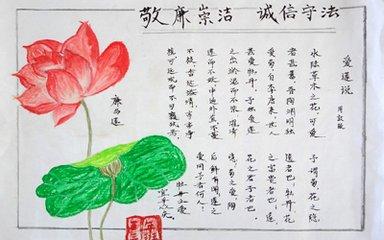 敬廉崇洁 诚信守法
爱莲说
周敦颐
水陆草木之花,可爱
者甚蕃。晋陶渊明独
爱菊。自李唐来,世人
甚爱牡丹。予独爱莲
之出淤泥而不染,濯清
涟而不妖,中通外直,不蔓
不枝,香远益清,亭亭净
植,可远观而不可亵玩焉。
予谓菊,花之隐
逸者也;牡丹,花
之富贵者也;莲,
花之君子者也。
噫!菊之爱,陶
后鲜有闻。莲之
爱,同予者何人?
牡丹之爱,
宜乎众矣。